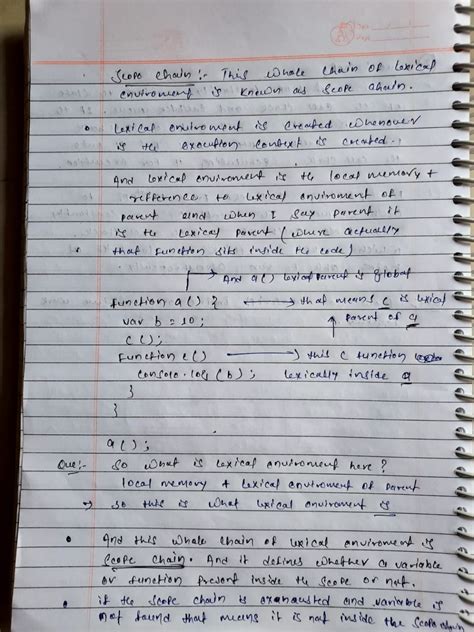 Scope chain :- This whole chain of lexical
enviroment is known as scope chain.
Lexical enviroment is created whenever
is the execution context is created.
And lexical enviroment is the local memory +
refference to lexical enviroment of
parent and when I say parent it
is the lexical parent (where actually
that function sits inside the code)
And a() lexical parent is global
function a() { → that means c is lexical
var b = 10; parent of a
c();
function c() → this c function
console.log(b); lexically inside a
}
}
a();
Que:- So what is lexical enviroment here?
local memory + lexical enviroment of parent
→ so this is what lexical enviroment is
And this whole chain of lexical enviroment is
scope chain. And it defines whether a variable
or function present inside the scope or not.
if the scope chain is exhausted and variable is
not found that means it is not inside the scope chain